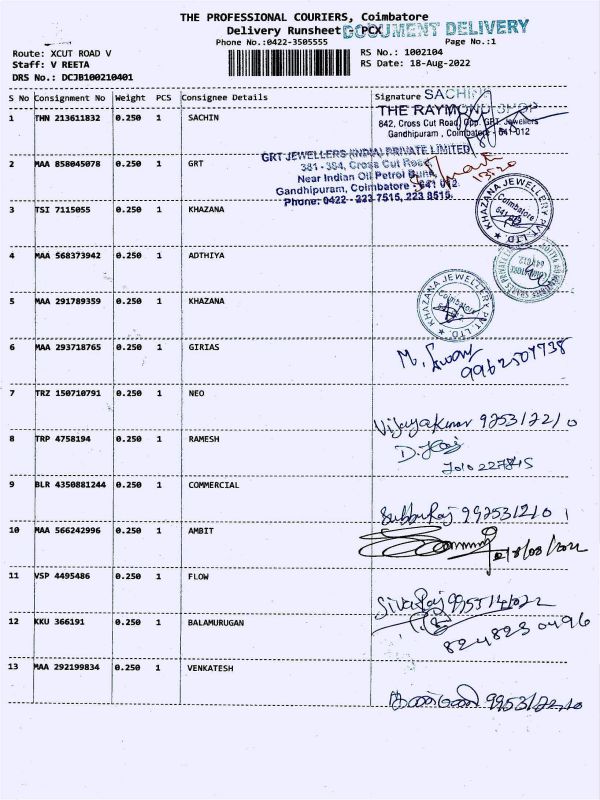 THE PROFESSIONAL COURIERS, Coimbatore
Delivery Runsheet - PCX
DOCUMENT DELIVERY
Phone No.:0422-3505555
Page No.:1
Route: XCUT ROAD V
RS No.: 1002104
Staff: V REETA
RS Date: 18-Aug-2022
DRS No.: DCJB100210401
S No Consignment No Weight PCS Consignee Details Signature
SACHIN
1 THN 213611832 0.250 1 SACHIN
THE RAYMOND SHOP
842, Cross Cut Road, Opp. GRT Jewellers
Gandhipuram, Coimbatore - 641 012
2 MAA 858045078 0.250 1 GRT
GRT JEWELLERS (INDIA) PRIVATE LIMITED
381 - 384, Cross Cut Road,
Near Indian Oil Petrol Bunk,
Gandhipuram, Coimbatore - 641 012.
Phone: 0422 - 223 7515, 223 8515.
3 TSI 7115055 0.250 1 KHAZANA
KHAZANA JEWELLERY PVT. LTD.
Coimbatore
4 MAA 568373942 0.250 1 ADTHIYA
5 MAA 291789359 0.250 1 KHAZANA
KHAZANA JEWELLERY PVT. LTD.
Coimbatore
6 MAA 293718765 0.250 1 GIRIAS
7 TRZ 150710791 0.250 1 NEO
Vijayakumar
8 TRP 4758194 0.250 1 RAMESH
9 BLR 4350881244 0.250 1 COMMERCIAL
Subburaj
10 MAA 566242996 0.250 1 AMBIT
11 VSP 4495486 0.250 1 FLOW
Sivaraj
12 KKU 366191 0.250 1 BALAMURUGAN
8248230496
13 MAA 292199834 0.250 1 VENKATESH